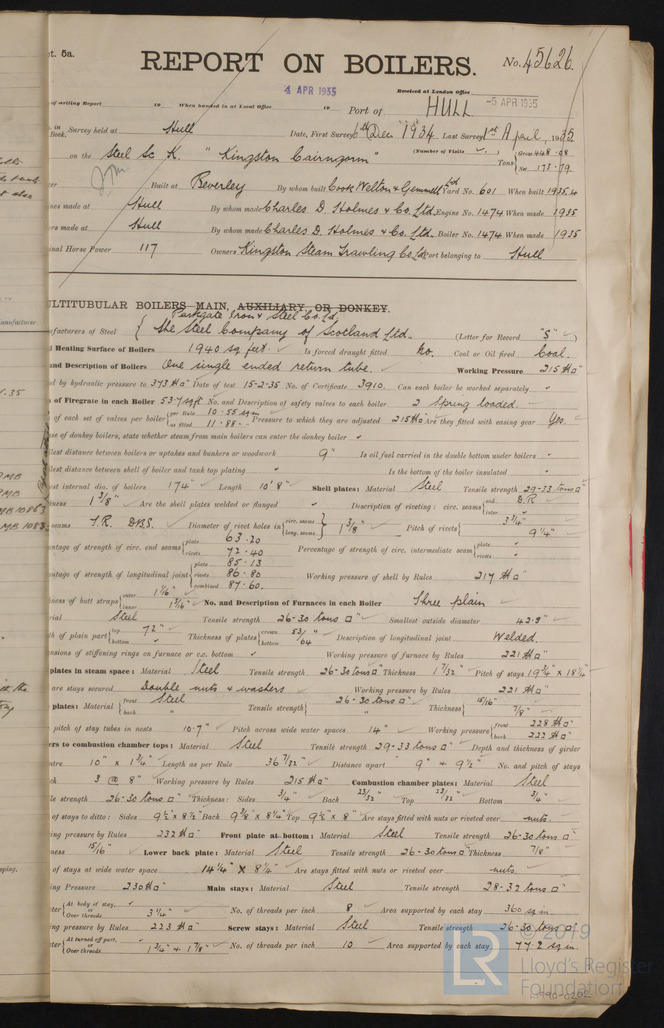 pt. 5a.
REPORT ON BOILERS.
No. 45626.
4 APR 1935
Received at London Office
-5 APR 1935
of writing Report 19 When handed in at Local Office 19 Port of HULL
in Book. Survey held at Hull Date, First Survey 1st Dec 1934 Last Survey 1st April, 1935
on the Steel Sc K. "Kingston Cairngorm" (Number of Visits ) Tons { Gross 448.08 Net 173.79
Built at Beverley By whom built Cook Welton & Gemmell Ltd Yard No. 601 When built 1935.4
nes made at Hull By whom made Charles D. Holmes & Co. Ltd. Engine No. 1474 When made 1935
rs made at Hull By whom made Charles D. Holmes & Co. Ltd. Boiler No. 1474 When made 1935
nal Horse Power 117 Owners Kingston Steam Trawling Co Ltd Port belonging to Hull
ULTITUBULAR BOILERS MAIN, AUXILIARY, OR DONKEY.
Parkgate Iron & Steel Co. Ld.
facturers of Steel { The Steel Company of Scotland Ltd. (Letter for Record "S" )
l Heating Surface of Boilers 1940 sq feet. Is forced draught fitted No. Coal or Oil fired Coal.
and Description of Boilers One single ended return tube. Working Pressure 215 #□"
d by hydraulic pressure to 373 #□" Date of test 15-2-35 No. of Certificate 3910. Can each boiler be worked separately "
of Firegrate in each Boiler 53.7 sq ft No. and Description of safety valves to each boiler 2 Spring loaded.
of each set of valves per boiler { per Rule 10.55 sq in as fitted 11.88 Pressure to which they are adjusted 215 #□" Are they fitted with easing gear Yes.
se of donkey boilers, state whether steam from main boilers can enter the donkey boiler "
lest distance between boilers or uptakes and bunkers or woodwork 9" Is oil fuel carried in the double bottom under boilers "
lest distance between shell of boiler and tank top plating " Is the bottom of the boiler insulated "
est internal dia. of boilers 174" Length 10' 8" Shell plates: Material Steel Tensile strength 29-33 tons □"
kness 1 3/8" Are the shell plates welded or flanged " Description of riveting: circ. seams { end D.R inter "
seams T.R. D.B.S. Diameter of rivet holes in { circ. seams long. seams 1 3/8" Pitch of rivets { 3 3/4" 9 1/4"
entage of strength of circ. end seams { plate 63.20 rivets 72.40 Percentage of strength of circ. intermediate seam { plate " rivets "
entage of strength of longitudinal joint { plate 85.13 rivets 86.80 combined 87.60. Working pressure of shell by Rules 217 #□"
kness of butt straps { outer 1 1/16" inner 1 3/16" No. and Description of Furnaces in each Boiler Three plain
rial Steel Tensile strength 26-30 tons □" Smallest outside diameter 42.9"
th of plain part { top 72" bottom " Thickness of plates { crown bottom 53/64" Description of longitudinal joint Welded.
nsions of stiffening rings on furnace or c.c. bottom " Working pressure of furnace by Rules 221 #□"
plates in steam space: Material Steel Tensile strength 26-30 tons □" Thickness 1 7/32" Pitch of stays 19 3/4" x 18 1/4"
are stays secured Double nuts & washers Working pressure by Rules 221 #□"
plates: Material { front Steel back " Tensile strength { 26-30 tons □" " Thickness { 15/16" 7/8"
pitch of stay tubes in nests 10.7" Pitch across wide water spaces 14" Working pressure { front 228 #□" back 222 #□"
ers to combustion chamber tops: Material Steel Tensile strength 29-33 tons □" Depth and thickness of girder
ntre 10" x 1 3/4" Length as per Rule 36 7/32" Distance apart 9" + 9 1/2" No. and pitch of stays
ch 3 @ 8" Working pressure by Rules 215 #□" Combustion chamber plates: Material Steel
le strength 26-30 tons □" Thickness: Sides 3/4" Back 23/32" Top 23/32" Bottom 3/4"
of stays to ditto: Sides 9 1/2" x 8 1/2" Back 9 3/8" x 8 1/4" Top 9 1/2" x 8" Are stays fitted with nuts or riveted over nuts.
ing pressure by Rules 232 #□" Front plate at bottom: Material Steel Tensile strength 26-30 tons □"
ness 15/16" Lower back plate: Material Steel Tensile strength 26-30 tons □" Thickness 7/8"
of stays at wide water space 14 1/4" x 8 1/4" Are stays fitted with nuts or riveted over nuts
ing Pressure 230 #□" Main stays: Material Steel Tensile strength 28-32 tons □"
eter { At body of stay, or Over threads 3 1/4" No. of threads per inch 8 Area supported by each stay 360 sq in.
ing pressure by Rules 223 #□" Screw stays: Material Steel Tensile strength 26-30 tons □"
eter { At turned off part, or Over threads 1 3/4" + 1 7/8" No. of threads per inch 10 Area supported by each stay 77.2 sq in.
© 2019
Lloyd's Register
Foundation
LR